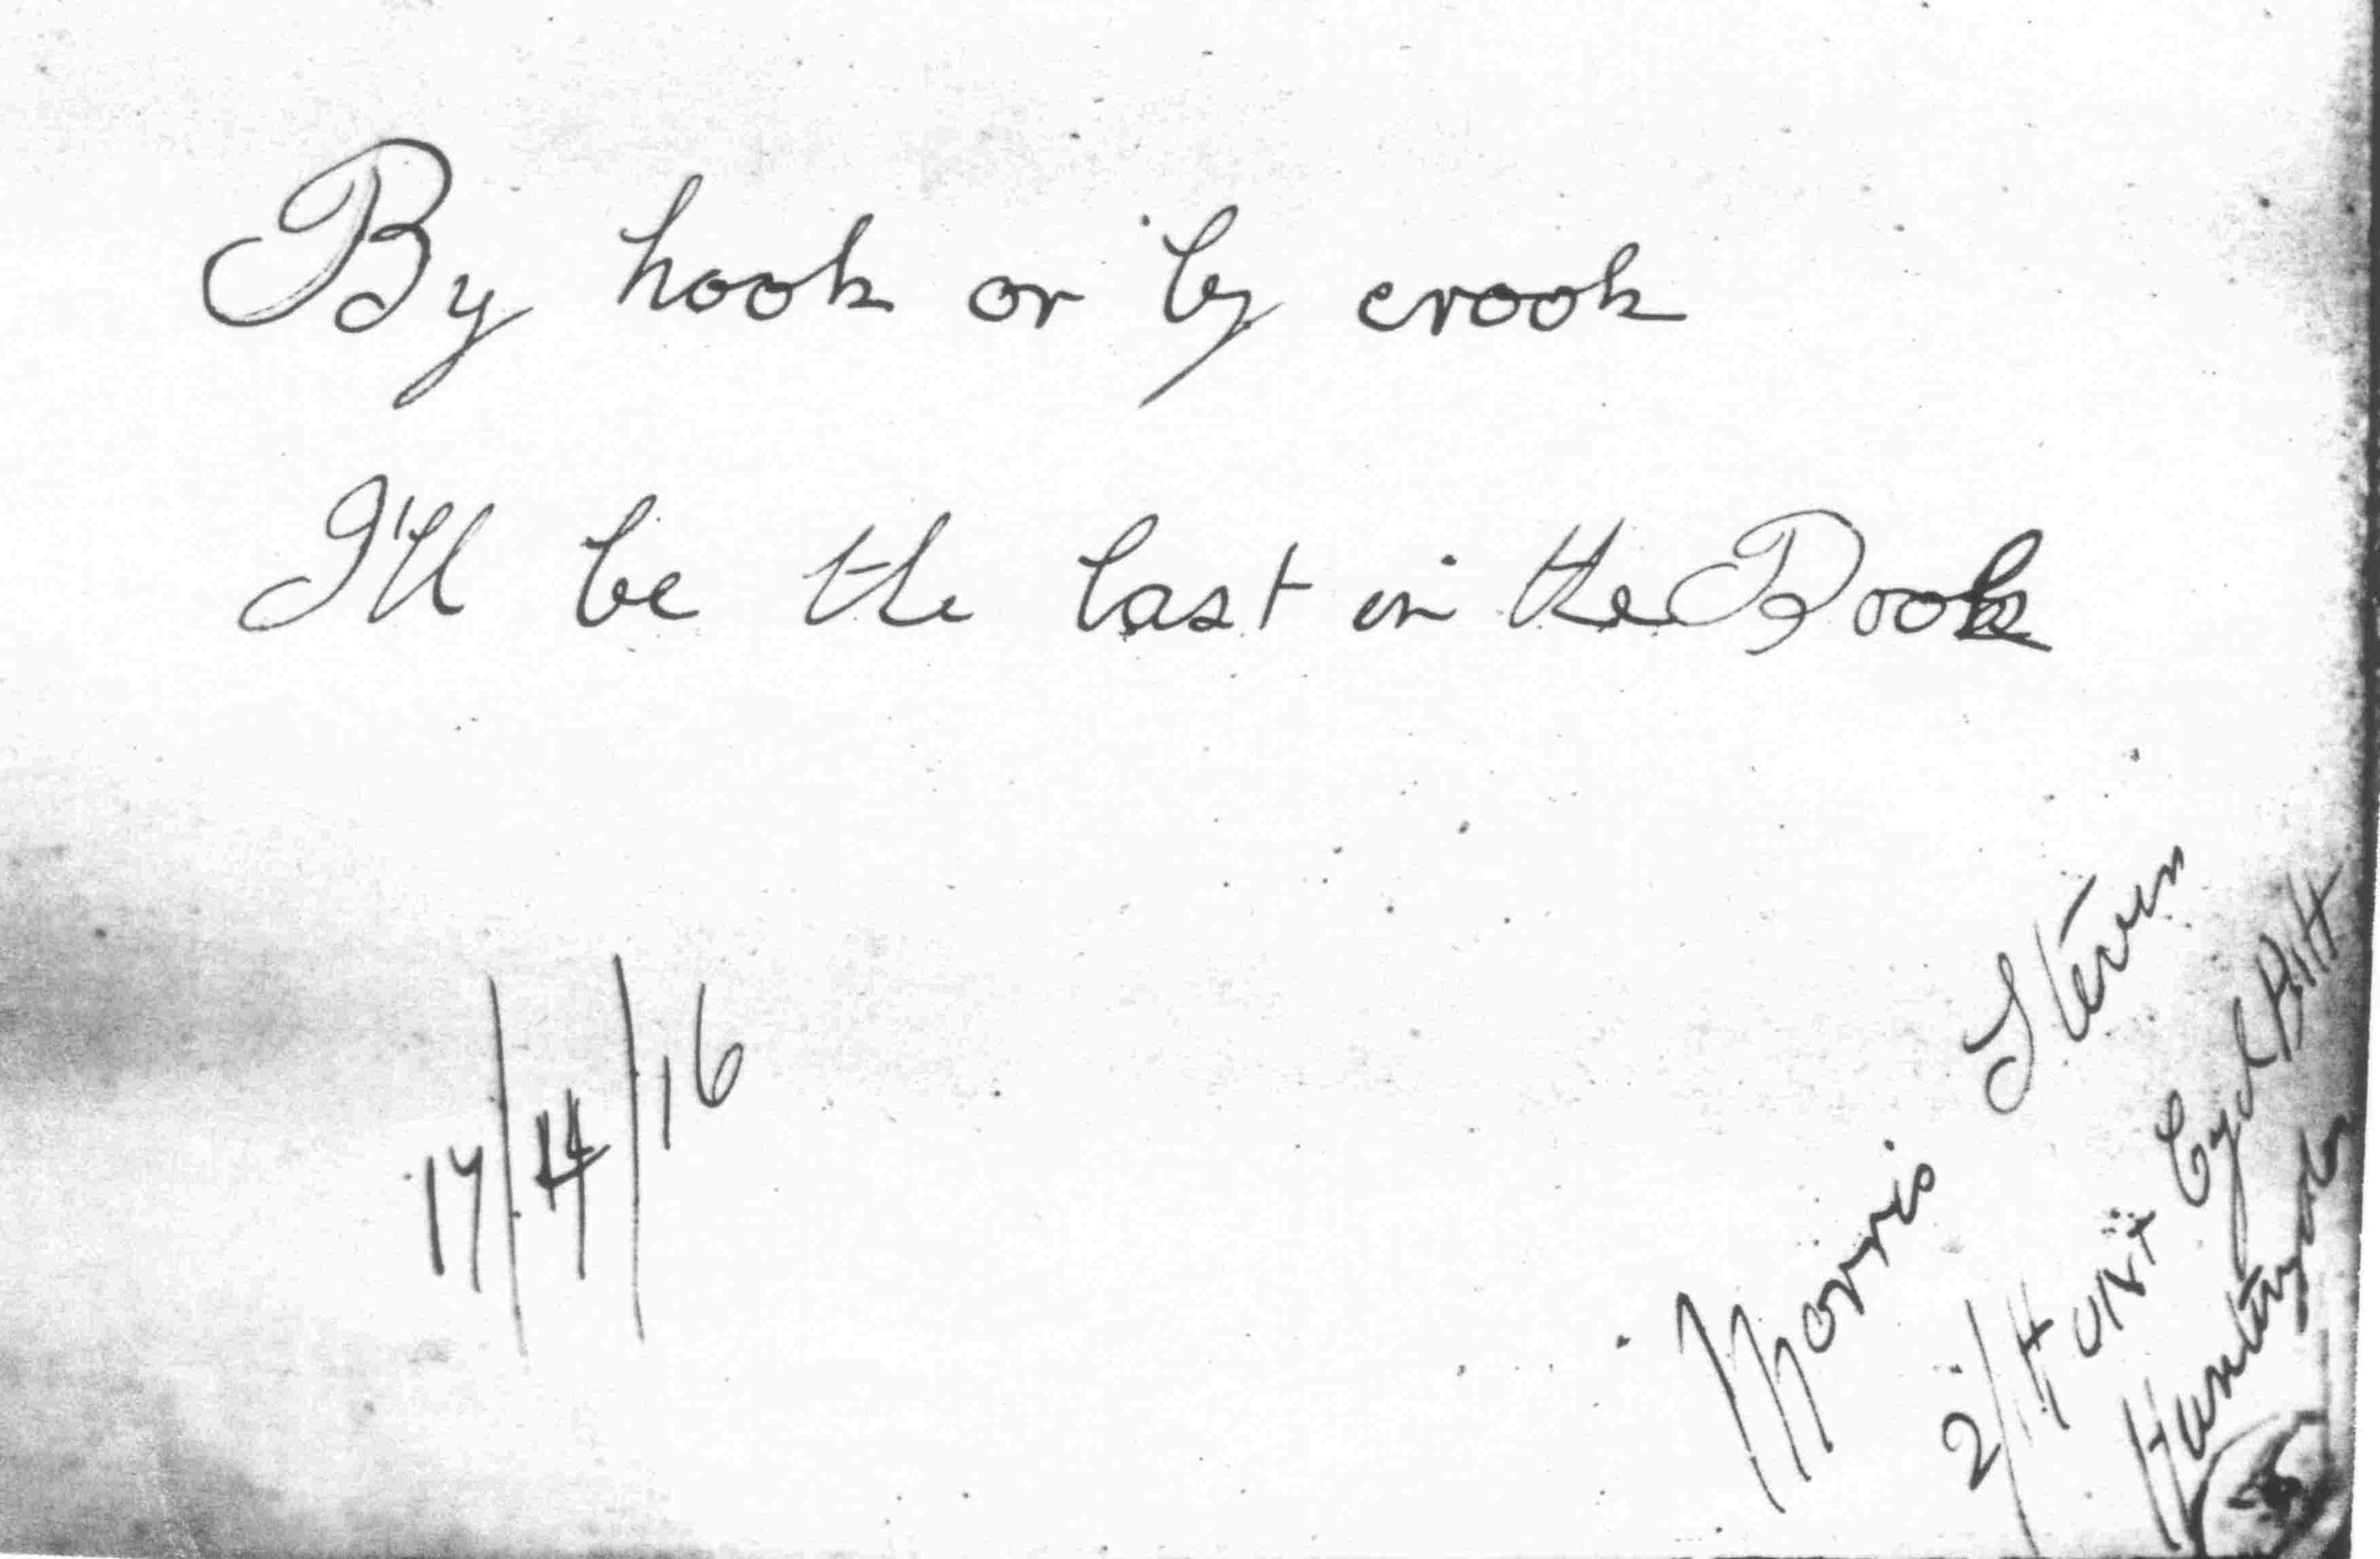 By hook or by crook
I'll be the last in the Book
17/4/16
Morris Steven
2/1 Hunts Cycl Batt
Huntingdon